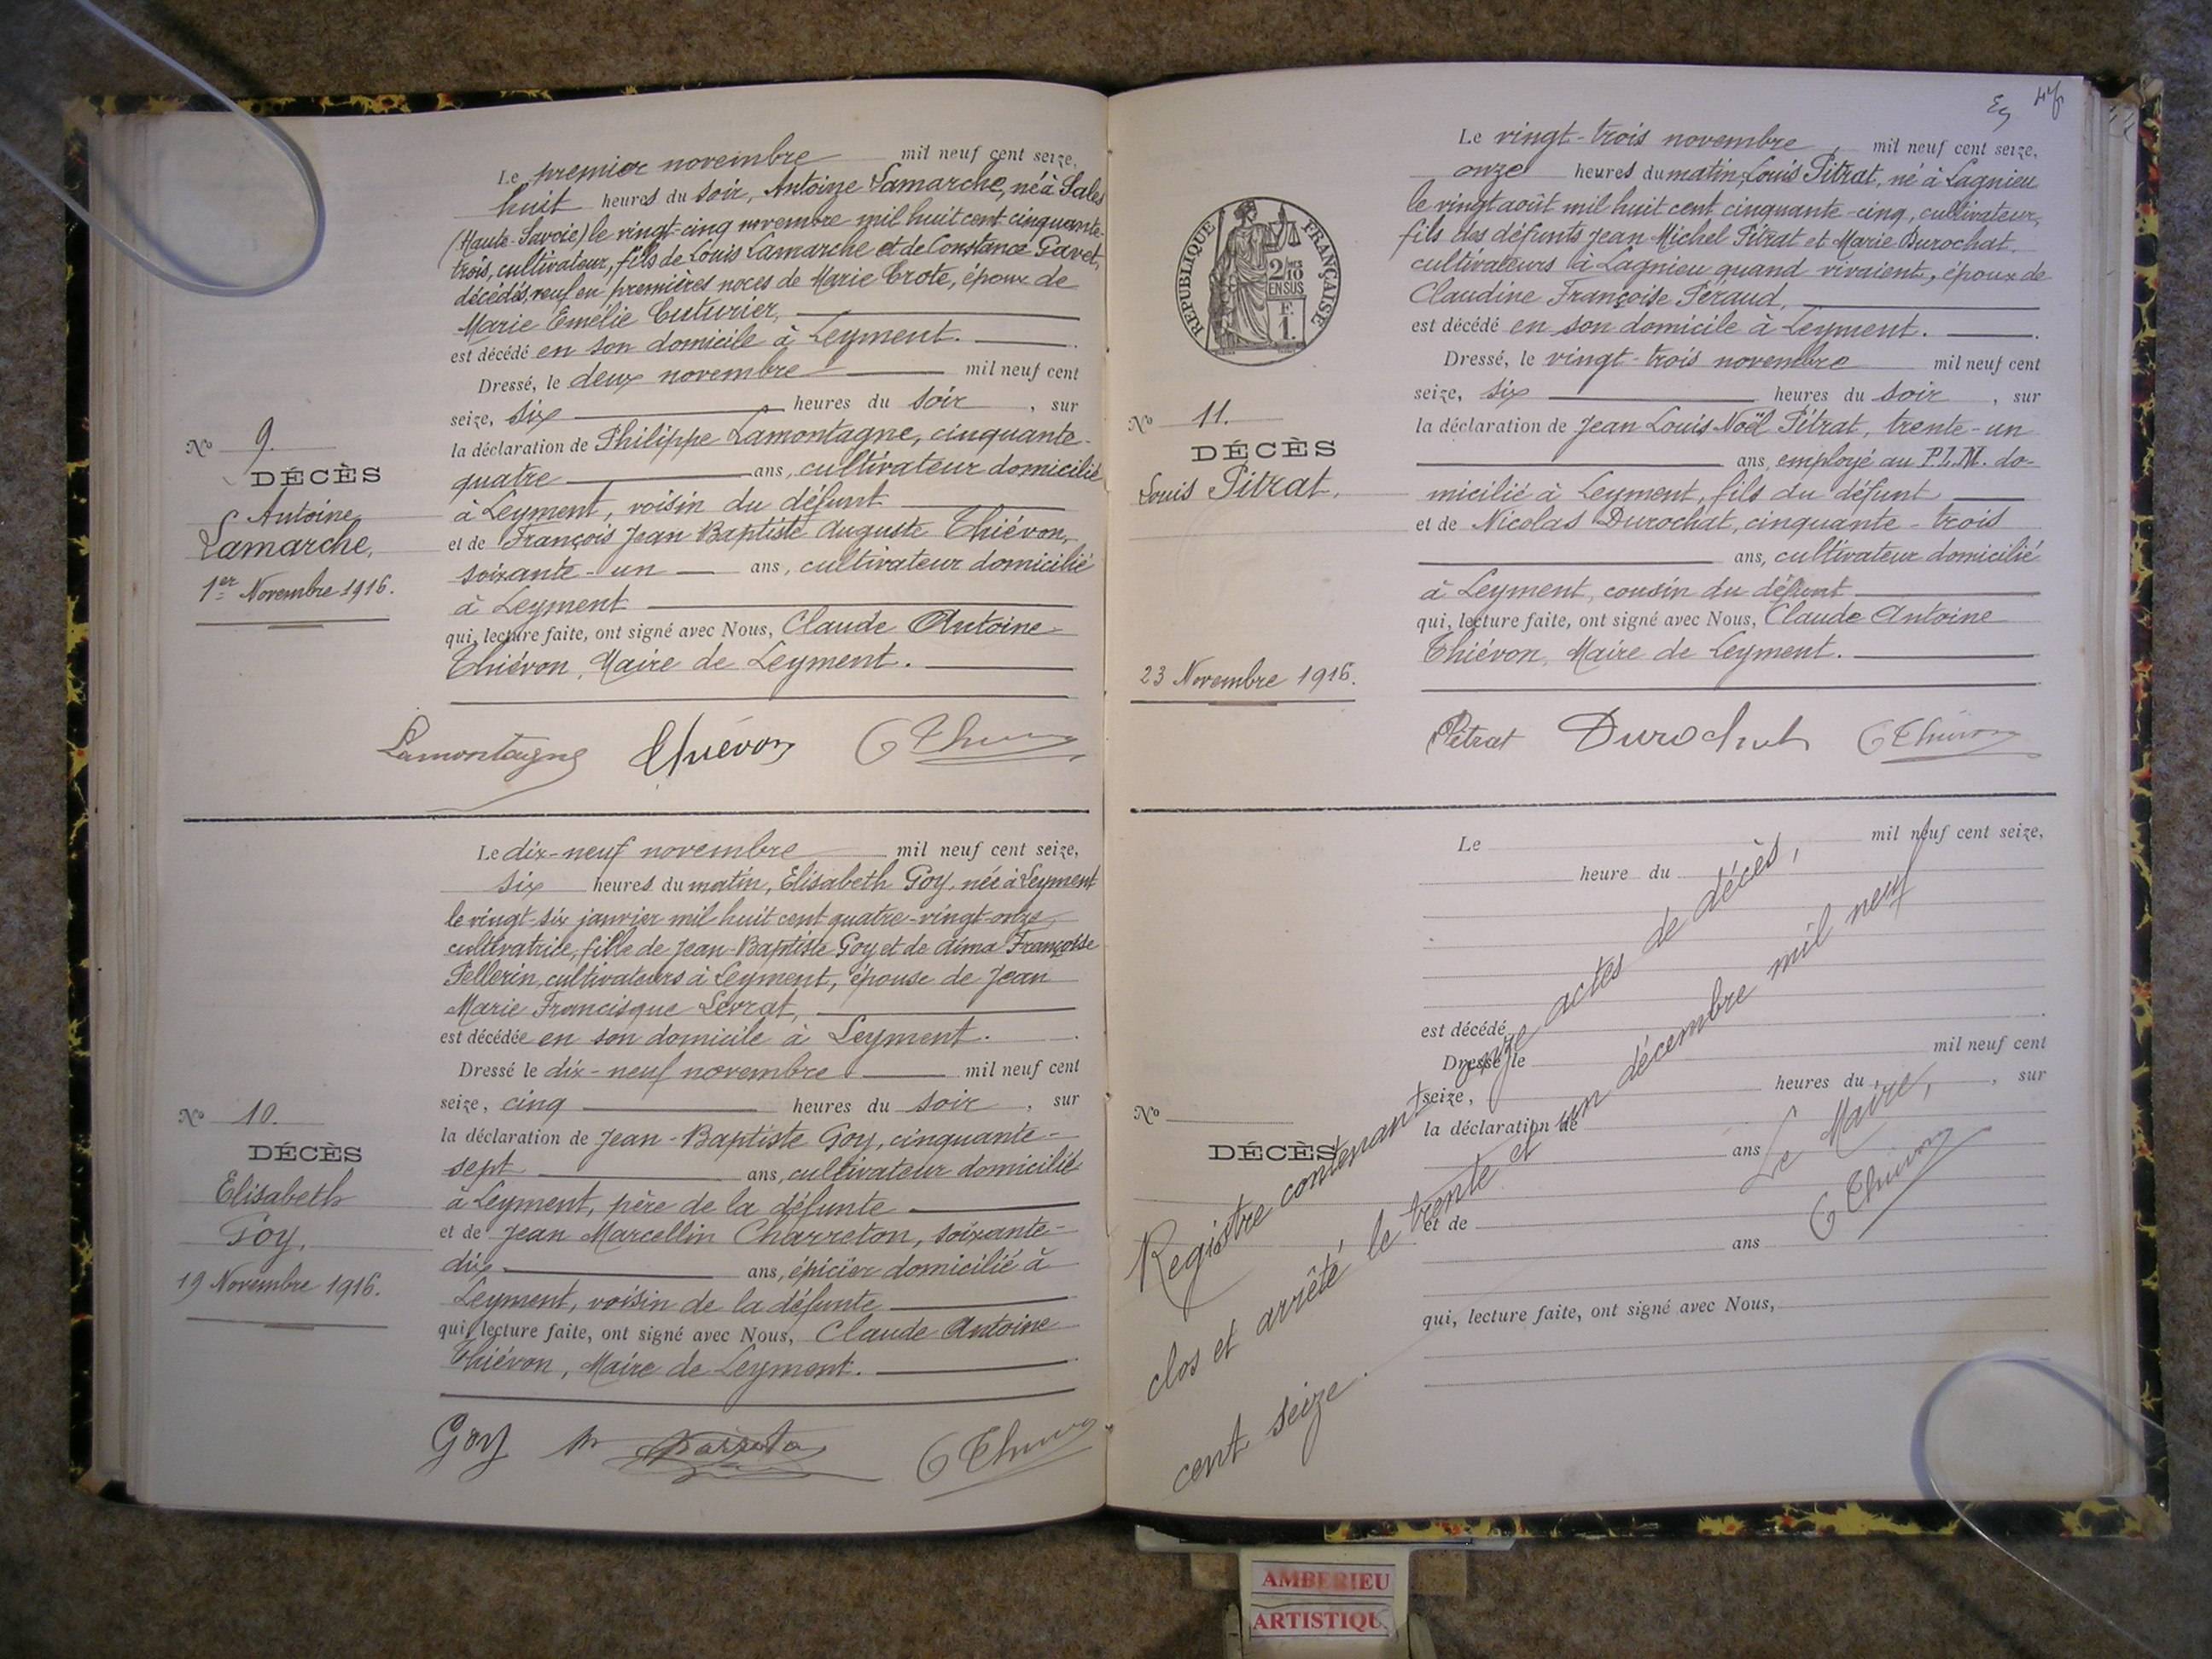 Le premier novembre mil neuf cent seize,
huit heures du soir, Antoine Lamarche, né à Sales
(Haute-Savoie) le vingt-cinq novembre mil huit cent cinquante-
trois, cultivateur, fils de Louis Lamarche et de Constance Gavet,
décédés, veuf en premières noces de Marie Trote, époux de
Marie Emélie Cuturier,
est décédé en son domicile à Leyment.
Dressé, le deux novembre mil neuf cent
seize, six heures du soir, sur
la déclaration de Philippe Lamontagne, cinquante-
quatre ans, cultivateur domicilié
à Leyment, voisin du défunt
et de François Jean Baptiste Auguste Thiévon,
soixante-un ans, cultivateur domicilié
à Leyment
qui, lecture faite, ont signé avec Nous, Claude Antoine
Thiévon, Maire de Leyment.
No 9.
DÉCÈS
Antoine
Lamarche,
1er Novembre 1916.
Lamontagne Thiévon
Le dix-neuf novembre mil neuf cent seize,
six heures du matin, Elisabeth Goy, née à Leyment
le vingt-six janvier mil huit cent quatre-vingt-onze
cultivatrice, fille de Jean-Baptiste Goy et de Aima Françoise
Pellerin, cultivateurs à Leyment, épouse de Jean
Marie Francisque Levrat,
est décédée en son domicile à Leyment.
Dressé le dix-neuf novembre mil neuf cent
seize, cinq heures du soir, sur
la déclaration de Jean-Baptiste Goy, cinquante-
sept ans, cultivateur domicilié
à Leyment, père de la défunte
et de Jean Marcellin Charreton, soixante-
dix ans, épicier domicilié à
Leyment, voisin de la défunte
qui, lecture faite, ont signé avec Nous, Claude Antoine
Thiévon, Maire de Leyment.
No 10.
DÉCÈS
Elisabeth
Goy.
19 Novembre 1916.
Goy
47
RÉPUBLIQUE FRANÇAISE
2/10 MES
EN SUS
F.
1.
Le vingt-trois novembre, mil neuf cent seize,
onze heures du matin, Louis Pitrat, né à Lagnieu
le vingt août mil huit cent cinquante-cinq, cultivateur,
fils des défunts Jean Michel Pitrat et Marie Durochat
cultivateurs à Lagnieu quand vivaient, époux de
Claudine Françoise Péraud,
est décédé en son domicile à Leyment.
Dressé, le vingt-trois novembre mil neuf cent
seize, six heures du soir, sur
la déclaration de Jean Louis Noël Pitrat, trente-un
ans, employé au P.L.M. do-
micilié à Leyment, fils du défunt
et de Nicolas Durochat, cinquante-trois
ans, cultivateur domicilié
à Leyment, cousin du défunt
qui, lecture faite, ont signé avec Nous, Claude Antoine
Thiévon, Maire de Leyment.
No 11.
DÉCÈS
Louis Pitrat,
23 Novembre 1916.
Pitrat Durochat C Thiévon
Le mil neuf cent seize,
heure du
est décédé
Dressé, le mil neuf cent
seize, heures du, sur
la déclaration de
ans
et de
ans
qui, lecture faite, ont signé avec Nous,
No
DÉCÈS
Registre contenant onze actes de décès,
clos et arrêté le trente et un décembre mil neuf
cent seize.
Le Maire,
C Thiévon
AMBERIEU
ARTISTIQU